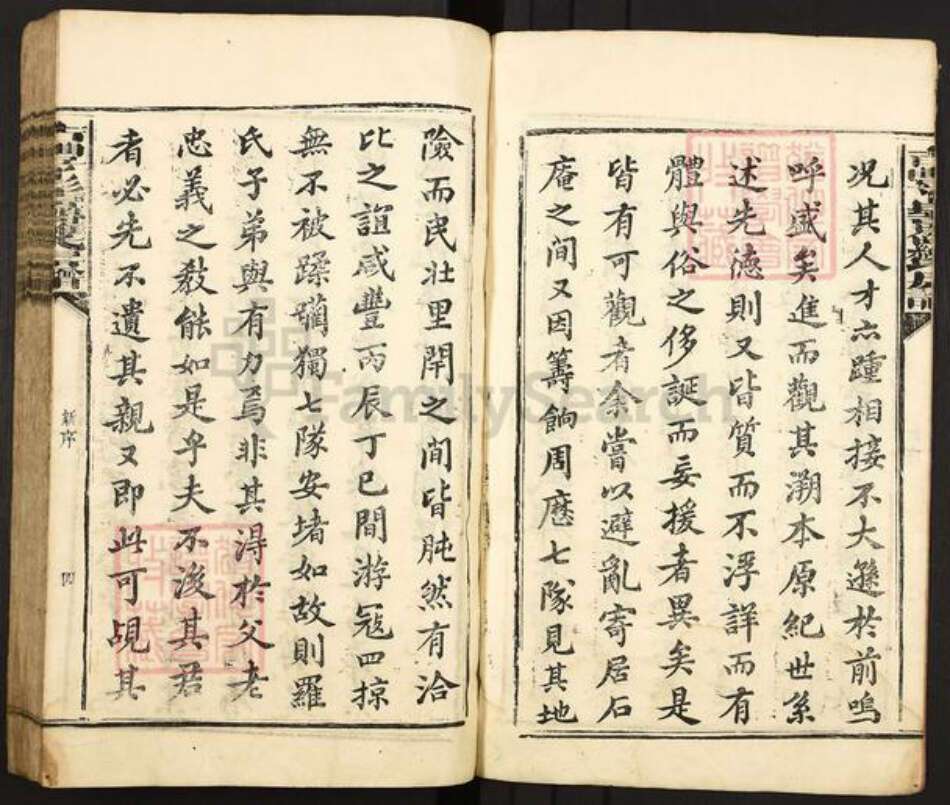 況其人才亦踵相接不大遜於前嗚
呼盛矣進而觀其溯本原紀世系
述先德則又皆質而不浮詳而有
體與俗之侈誕而妄援者異矣是
皆有可觀者余嘗以避亂寄居石
庵之間又因籌餉周歷七隊見其地
險而民壯里閈之間皆肫然有洽
比之誼咸豐丙辰丁巳間游寇四掠
無不被蹂躪獨七隊安堵如故則羅
氏子弟與有力焉非其得於父老
忠義之教能如是乎夫不後其君
者必先不遺其親又即此可覘其
新序
四
FamilySearch